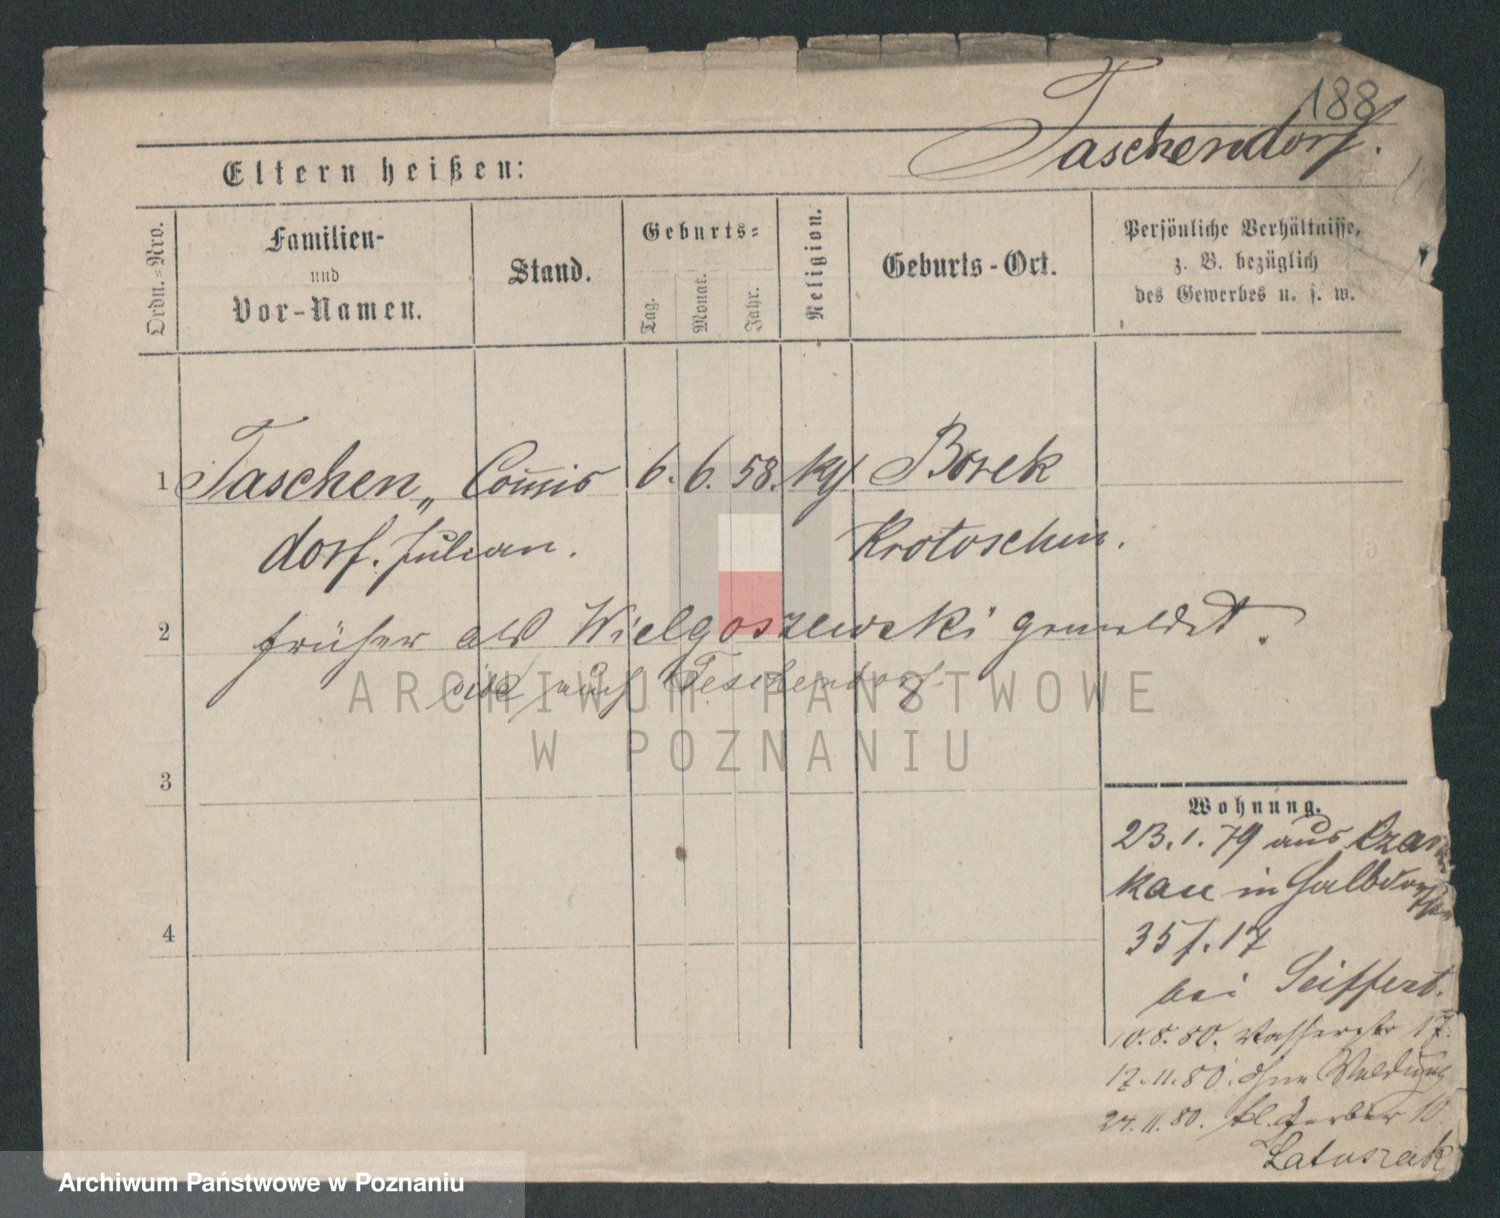 188
Taschendorf.
Eltern heißen:
Ordn.=Nro.
Familien-
und
Vor-Namen.
Stand.
Geburts=
Tag.
Monat.
Jahr.
Religion.
Geburts-Ort.
Persönliche Verhältnisse,
z. B. bezüglich
des Gewerbes u. s. w.
1 Taschen„ Com̅is 6. 6. 58. kth Borek
dorf. Julian. Krotoschin.
2 früher als Wielgoszewski gemeldet.
vide auch Teschendorf.
ARCHIWUM PAŃSTWOWE
W POZNANIU
3
4
Wohnung.
23.1.79 aus Czarn
kau in Halbdorfstr
35 f. 17
bei Seiffert.
10.8.80. Wasserstr 17.
17.11.80. ohne Meldung
24.11.80. kl. Gerber 10.
Latuszak
Archiwum Państwowe w Poznaniu